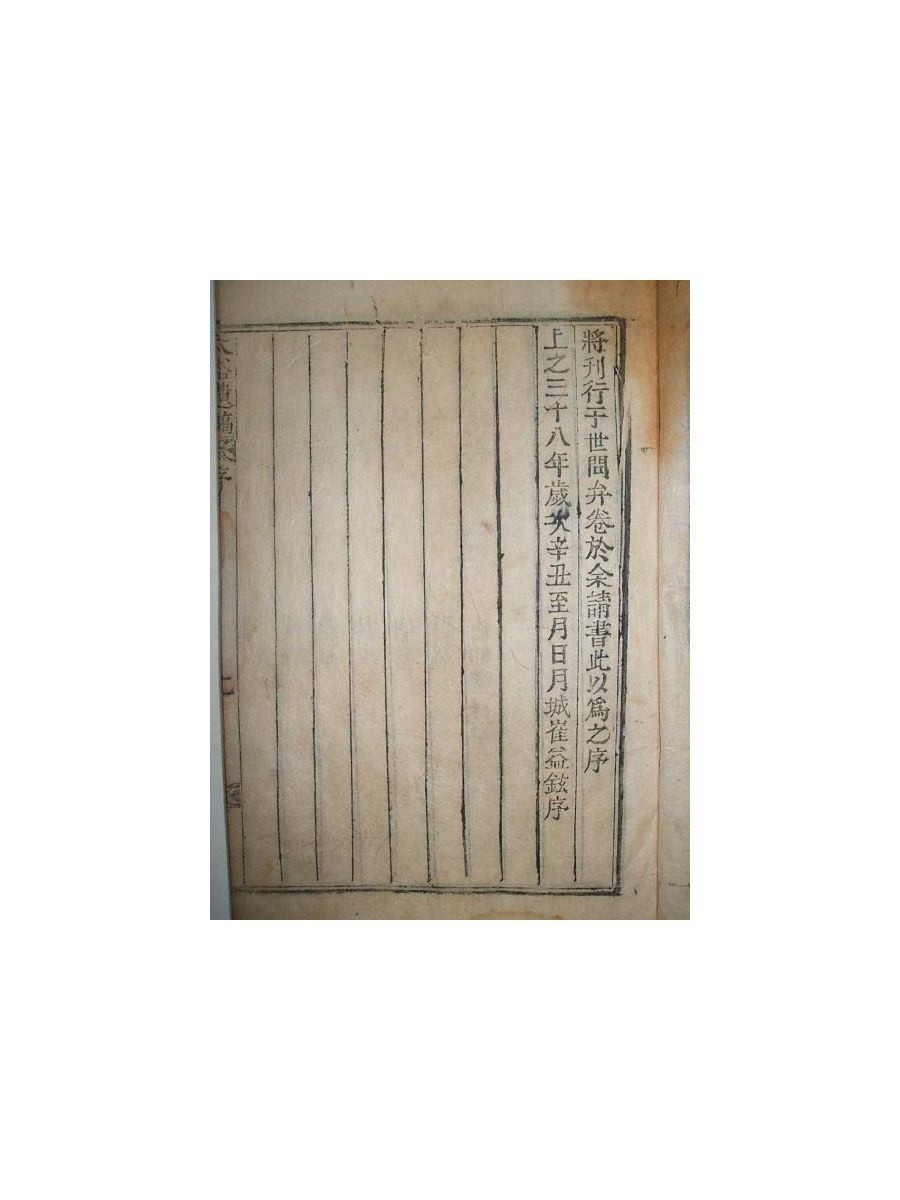 將刊行于世問弁卷於余請書此以爲之序
上之三十八年歲次辛丑至月日月城崔益鉉序
谷遺稿 序